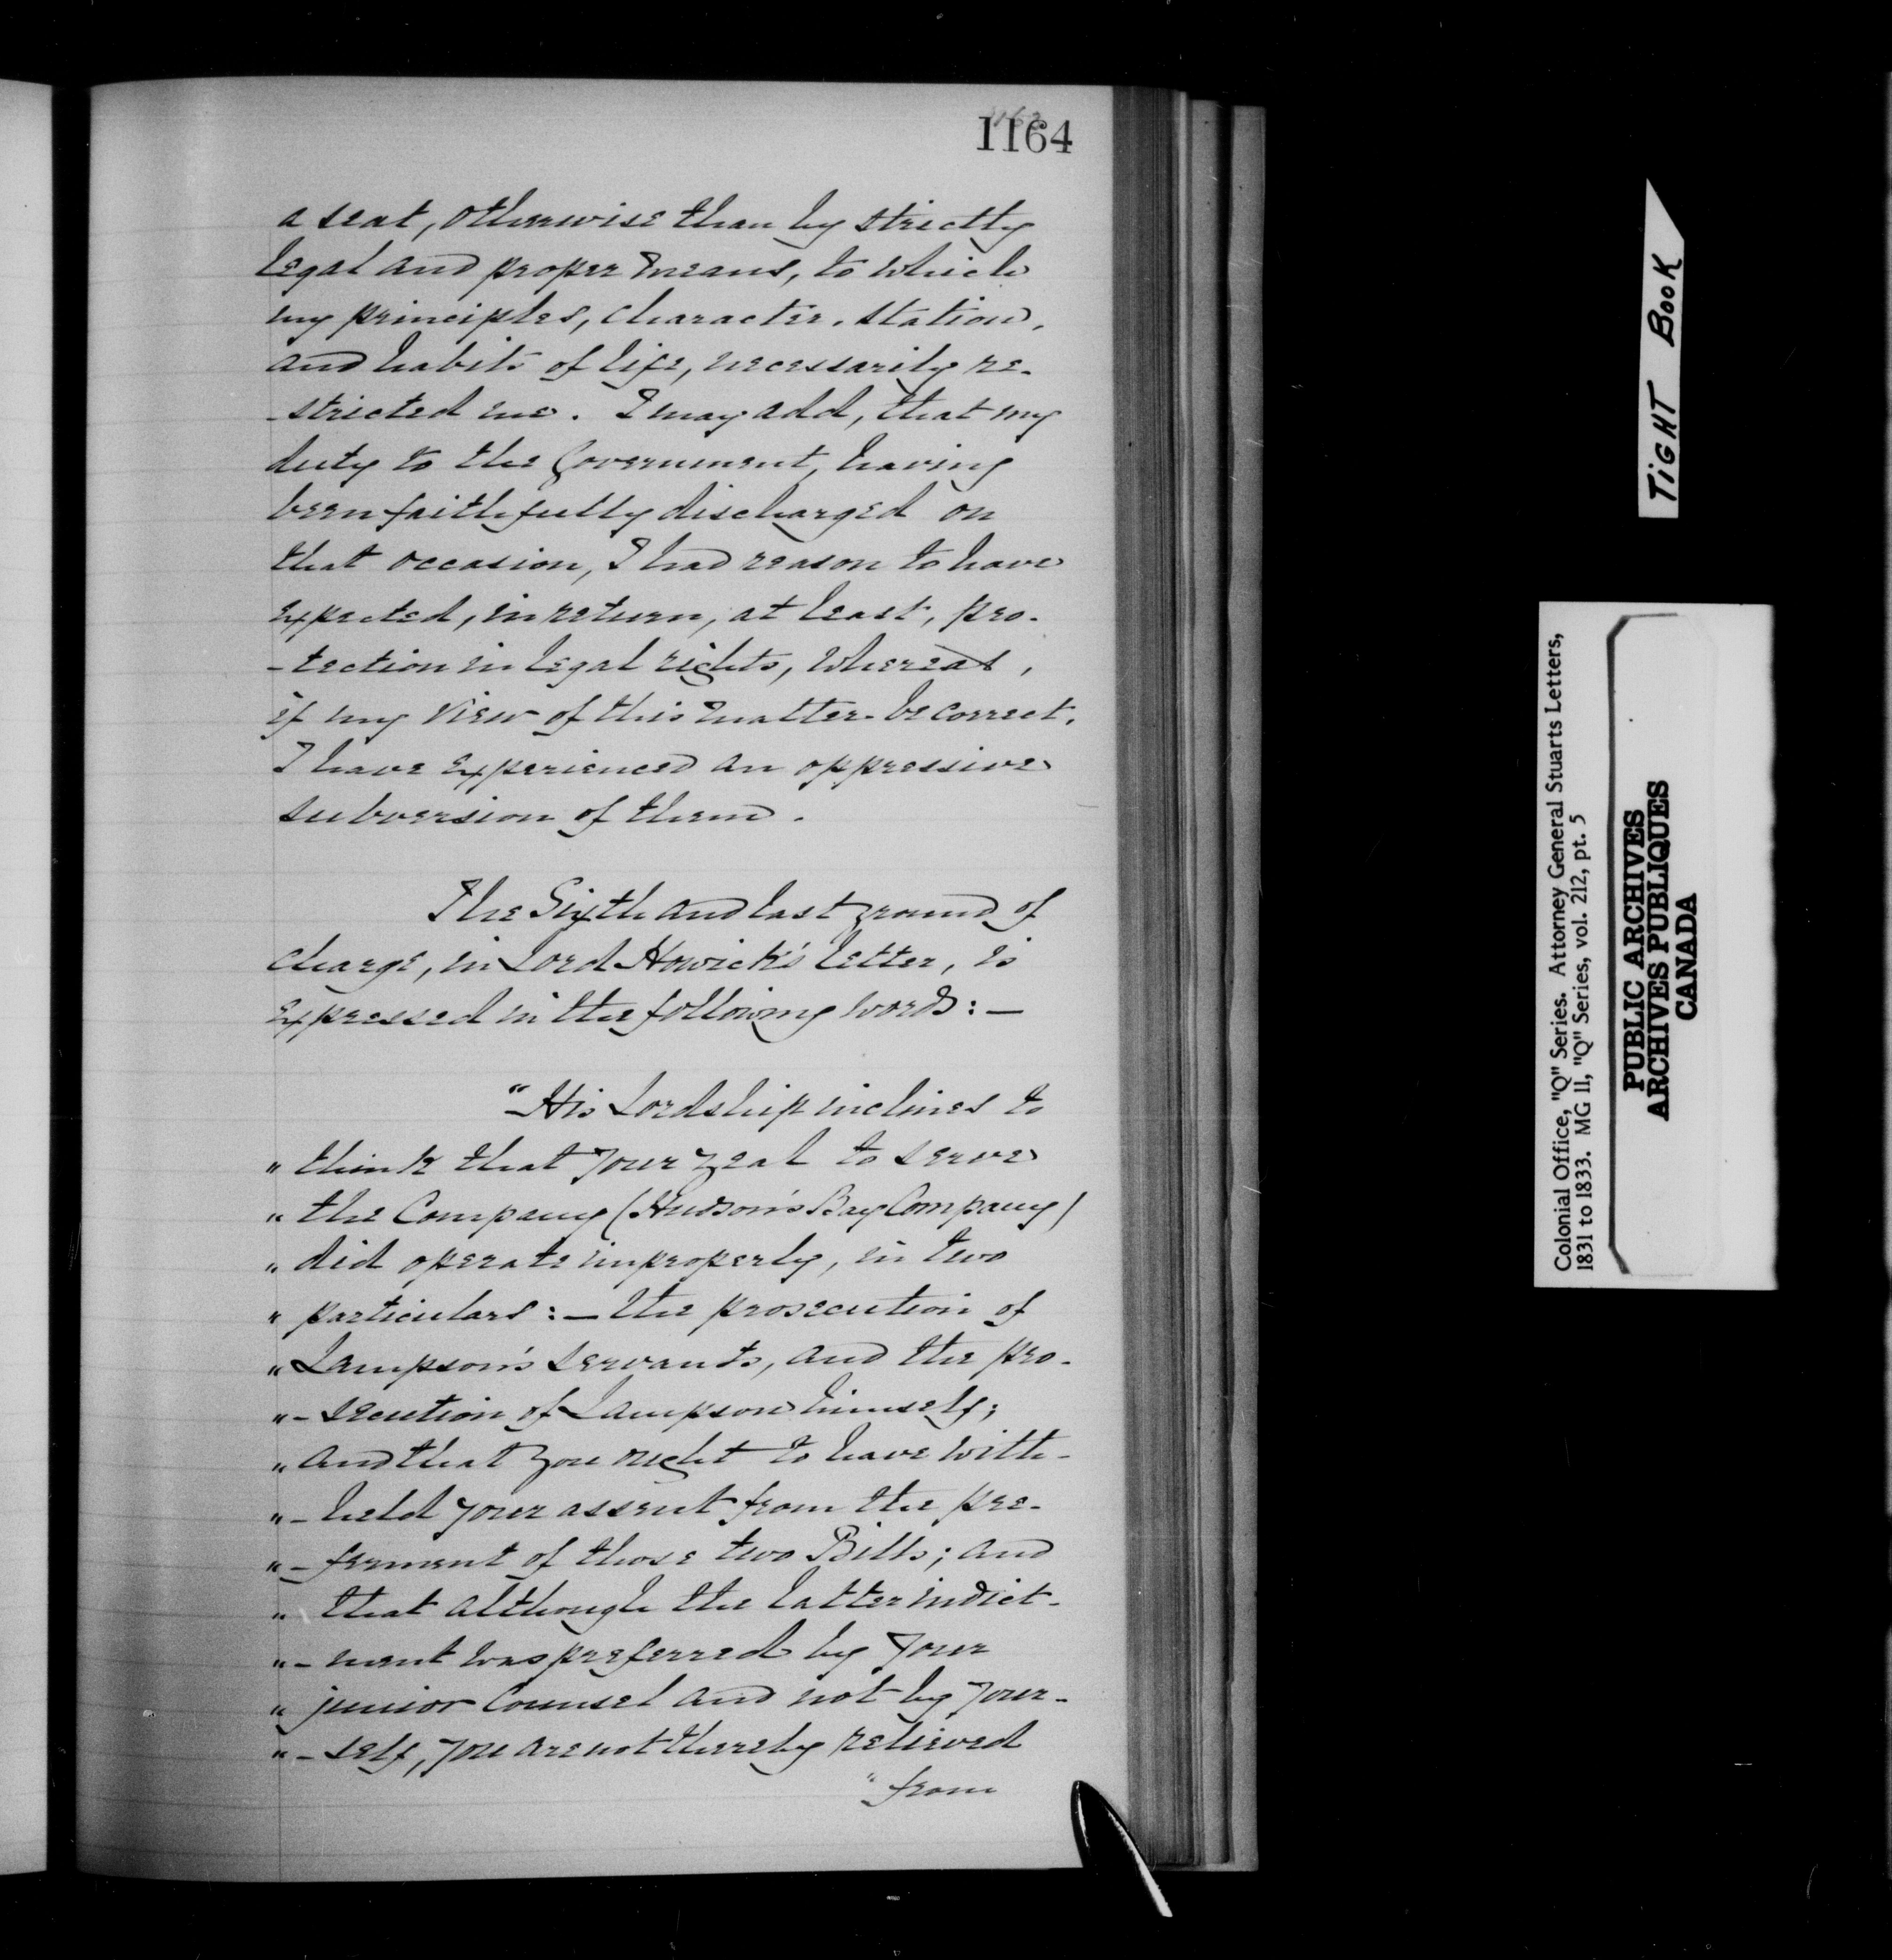 1164
a seat, otherwise than by strictly
legal and proper means, to which
my principles, character, station,
and habits of life, necessarily re-
-stricted me. I may add, that my
duty to the Government, having
been faithfully discharged on
that occasion, I had reason to have
expected, in return, at least, pro-
-tection in legal rights, whereas,
if my view of this matter be correct,
I have experienced an oppressive
subversion of them.
The Sixth and last ground of
charge, in Lord Howick's letter, is
expressed in the following words:—
"His Lordship inclines to
" think that your zeal to serve
" the Company (Hudson's Bay Company)
" did operate improperly, in two
" particulars:— the prosecution of
" Lampson's servants, and the pro-
"-secution of Lampson himself;
" and that you ought to have with-
"-held your assent from the pre-
"-ferment of those two Bills; and
" that although the latter indict-
"-ment was preferred by your
" junior Counsel and not by your-
"-self, you are not thereby relieved
" from
TIGHT BOOK
Colonial Office, "Q" Series. Attorney General Stuarts Letters,
1831 to 1833. MG 11, "Q" Series, vol. 212, pt. 5
PUBLIC ARCHIVES
ARCHIVES PUBLIQUES
CANADA